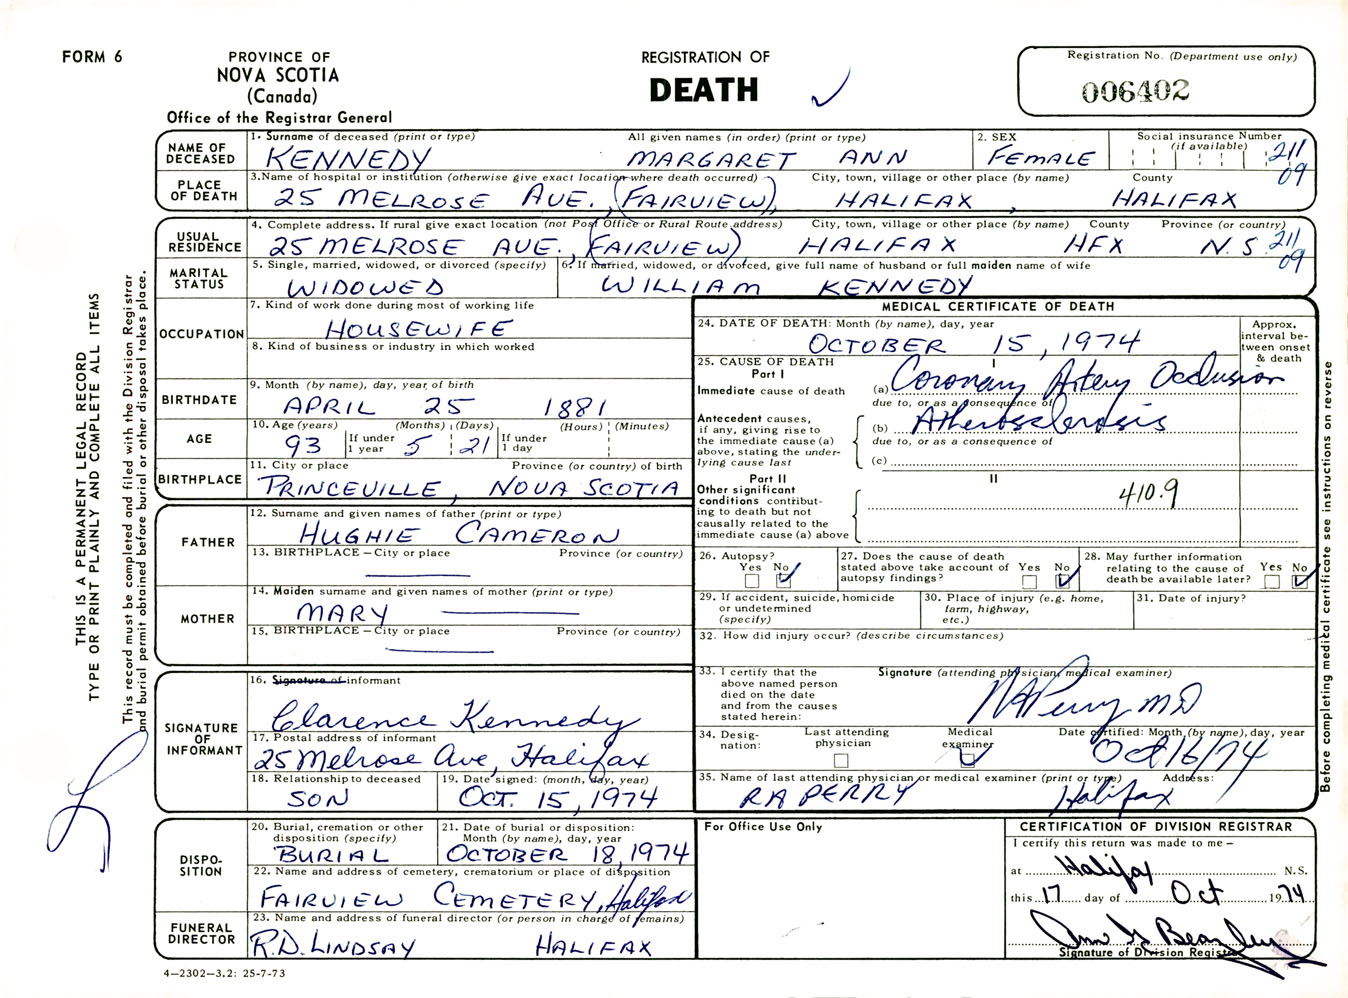 FORM 6
PROVINCE OF
NOVA SCOTIA
(Canada)
Office of the Registrar General
REGISTRATION OF
DEATH
Registration No. (Department use only)
006402
NAME OF DECEASED
1. Surname of deceased (print or type)
KENNEDY
All given names (in order) (print or type)
MARGARET ANN
2. SEX
FEMALE
Social insurance Number (if available)
211
09
PLACE OF DEATH
3. Name of hospital or institution (otherwise give exact location where death occurred)
25 MELROSE AVE., (FAIRVIEW),
City, town, village or other place (by name)
HALIFAX,
County
HALIFAX
USUAL RESIDENCE
4. Complete address. If rural give exact location (not Post Office or Rural Route address)
25 MELROSE AVE., (FAIRVIEW)
City, town, village or other place (by name)
HALIFAX
County
HFX
Province (or country)
N.S.
211
09
MARITAL STATUS
5. Single, married, widowed, or divorced (specify)
WIDOWED
6. If married, widowed, or divorced, give full name of husband or full maiden name of wife
WILLIAM KENNEDY
OCCUPATION
7. Kind of work done during most of working life
HOUSEWIFE
8. Kind of business or industry in which worked
BIRTHDATE
9. Month (by name), day, year, of birth
APRIL 25 1881
AGE
10. Age (years) (Months) (Days) (Hours) (Minutes)
93 If under 1 year 5 21 If under 1 day
BIRTHPLACE
11. City or place Province (or country) of birth
PRINCEVILLE, NOVA SCOTIA
FATHER
12. Surname and given names of father (print or type)
HUGHIE CAMERON
13. BIRTHPLACE – City or place Province (or country)
MOTHER
14. Maiden surname and given names of mother (print or type)
MARY
15. BIRTHPLACE – City or place Province (or country)
SIGNATURE OF INFORMANT
16. Signature of informant
Clarence Kennedy
17. Postal address of informant
25 Melrose Ave, Halifax
18. Relationship to deceased
SON
19. Date signed: (month, day, year)
OCT. 15, 1974
DISPO-
SITION
20. Burial, cremation or other disposition (specify)
BURIAL
21. Date of burial or disposition: Month (by name), day, year
OCTOBER 18, 1974
22. Name and address of cemetery, crematorium or place of disposition
FAIRVIEW CEMETERY, Halifax
FUNERAL DIRECTOR
23. Name and address of funeral director (or person in charge of remains)
R.D. LINDSAY HALIFAX
4—2302—3.2: 25-7-73
MEDICAL CERTIFICATE OF DEATH
24. DATE OF DEATH: Month (by name), day, year
OCTOBER 15, 1974
Approx. interval be-
tween onset & death
25. CAUSE OF DEATH
Part I
I
Immediate cause of death
(a) Coronary Artery Occlusion
due to, or as a consequence of
Antecedent causes, if any, giving rise to the immediate cause (a) above, stating the under-
lying cause last
(b) Atherosclerosis
due to, or as a consequence of
(c)
Part II
II
Other significant conditions contribut-
ing to death but not causally related to the immediate cause (a) above
410.9
26. Autopsy?
Yes No
27. Does the cause of death stated above take account of autopsy findings?
Yes No
28. May further information relating to the cause of death be available later?
Yes No
29. If accident, suicide, homicide or undetermined (specify)
30. Place of injury (e.g. home, farm, highway, etc.)
31. Date of injury?
32. How did injury occur? (describe circumstances)
33. I certify that the above named person died on the date and from the causes stated herein:
Signature (attending physician, medical examiner)
RA Perry MD
34. Desig-
nation:
Last attending physician
Medical examiner
Date certified: Month (by name), day, year
Oct 16/74
35. Name of last attending physician or medical examiner (print or type) Address:
RA PERRY Halifax
For Office Use Only
CERTIFICATION OF DIVISION REGISTRAR
I certify this return was made to me –
at Halifax N.S.
this 17 day of Oct 1974
Signature of Division Registrar
THIS IS A PERMANENT LEGAL RECORD
TYPE OR PRINT PLAINLY AND COMPLETE ALL ITEMS
This record must be completed and filed with the Division Registrar
and burial permit obtained before burial or other disposal takes place.
Before completing medical certificate see instructions on reverse